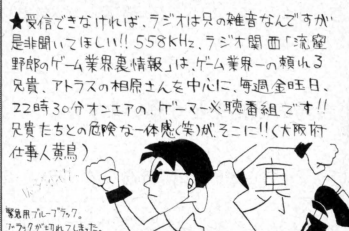 ★受信できなければ、ラジオは只の雑音なんですが
是非聞いてほしい!! 558KHz、ラジオ関西「流窪
野郎のゲーム業界裏情報」は、ゲーム業界一の頼れる
兄貴、アトラスの相原さんを中心に、毎週金曜日、
22時30分オンエアの、ゲーマー必聴番組です!!
兄貴たちとの危険な一体感(笑)が、そこに!!(大阪府
仕事人黄鳥)
裏
用ブルーブラック。
ブラックが切れてしまった。